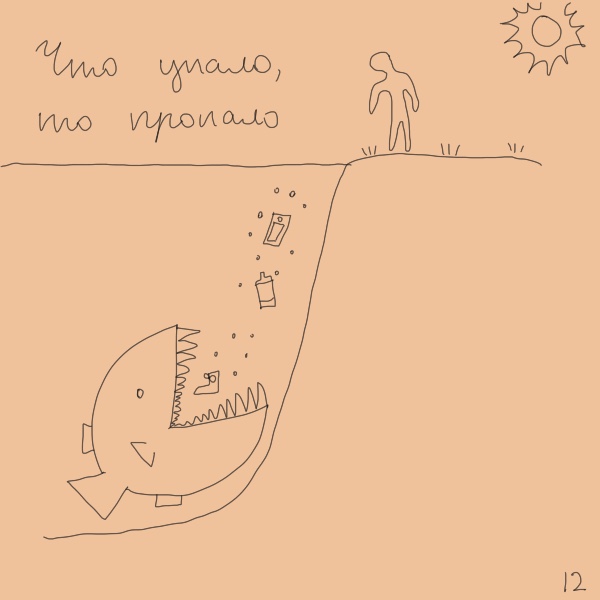 Что упало,
то пропало
12